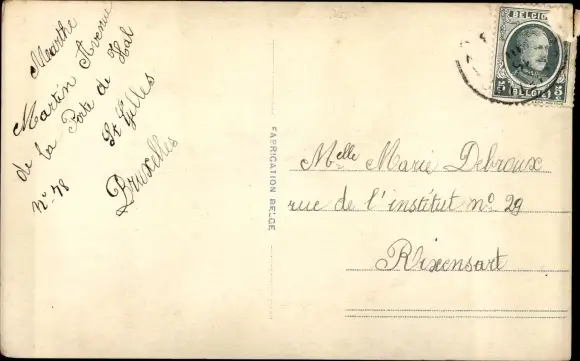 Marthe
Martin Avenue
de la Porte de Hal
St Gilles
N° 78
Bruxelles
FABRICATION BELGE
BELGIQUE
5 BELGIE 5
Melle Marie Debroux
rue de l'institut n° 29
Rixensart